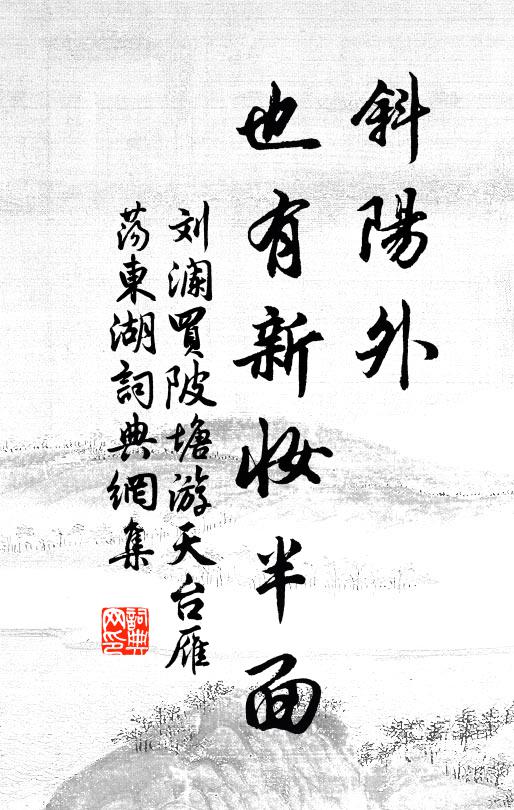 斜陽外
也有新妝半面
刘瀾買陂塘游天台雁
蕩東湖詞典網集
詞典
网印